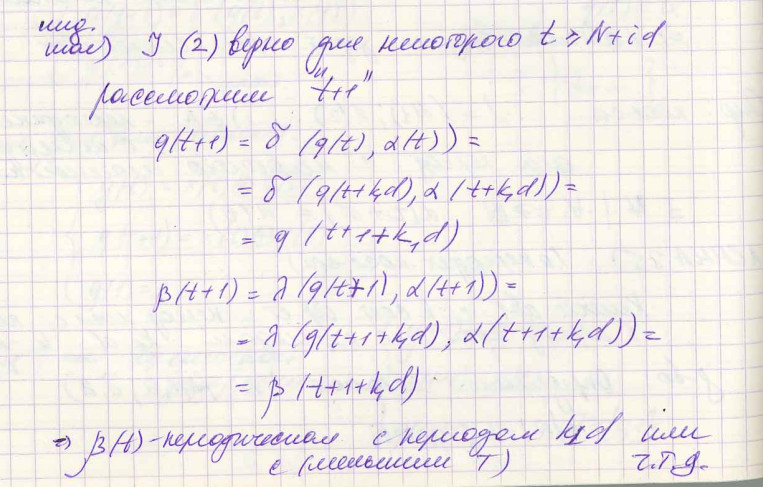 инд.
шаг) ] (2) верно для некоторого t ≥ N+id
рассмотрим "t+1"
q(t+1) = δ (q(t), α(t)) =
= δ (q(t+k₁d), α(t+k₁d)) =
= q (t+1+k₁d)
β(t+1) = λ (q(t+1), α(t+1)) =
= λ (q(t+1+k₁d), α(t+1+k₁d)) =
= β (t+1+k₁d)
⇒ β(t) - периодическая с периодом k₁d или
с (меньшим T) ч.т.д.